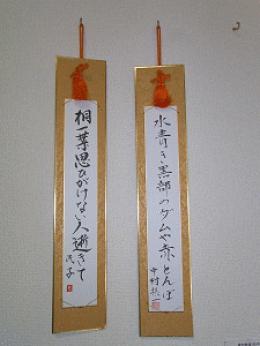 水青き黒部のダムや赤とんぼ
中村
桐一葉思ひがけない人逝きて